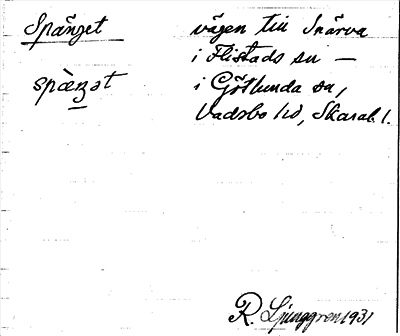 Spånget
vägen till Snårva
i Flistads sn —
spɑ̀ŋət
i Götlunda sn,
Vadsbo hd, Skarab. l.
R. Ljunggren 1931